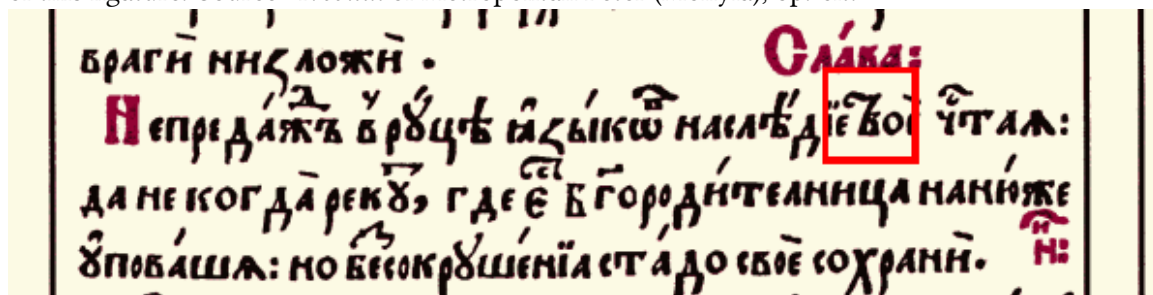 врагѝ низложѝ . Сла́ва:
Непреда́ⷤждъ в̾ рꙋ́цѣ ꙗ҆зы́кѡⷡ҇ наслѣ́дїе твоѐ чⷭ҇таѧ:
да не когда̀ рекꙋⷮ, где є҆ⷭ҇ Бг҃ороди́телница наню́же
ꙋ҆пова́шѧ: но беⷥсокрꙋше́нїа ста́до своѐ сохранѝ. Нⷩ҇: